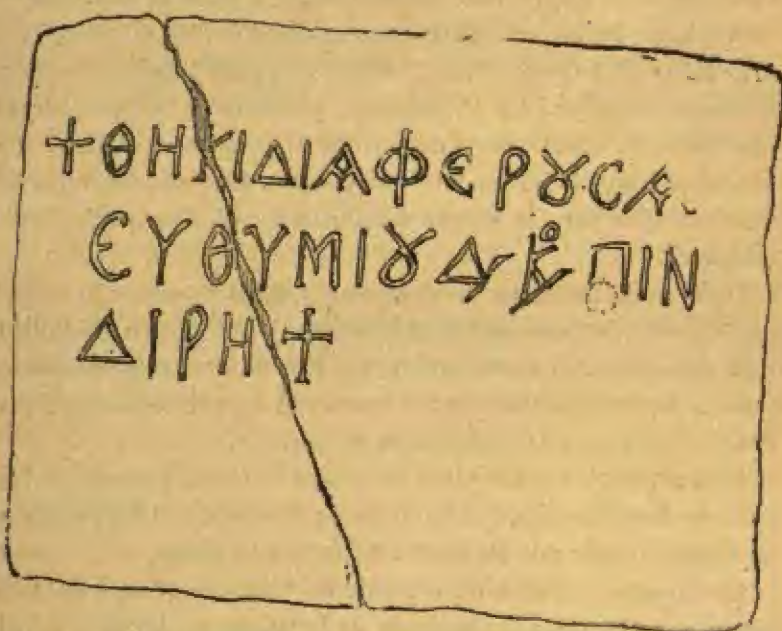 +ΘΗΚΙΔΙΑΦΕΡȢCΑ
ΕΥΘΥΜΙȢΔΚΠΙΝ
ΔΙΡΗ+